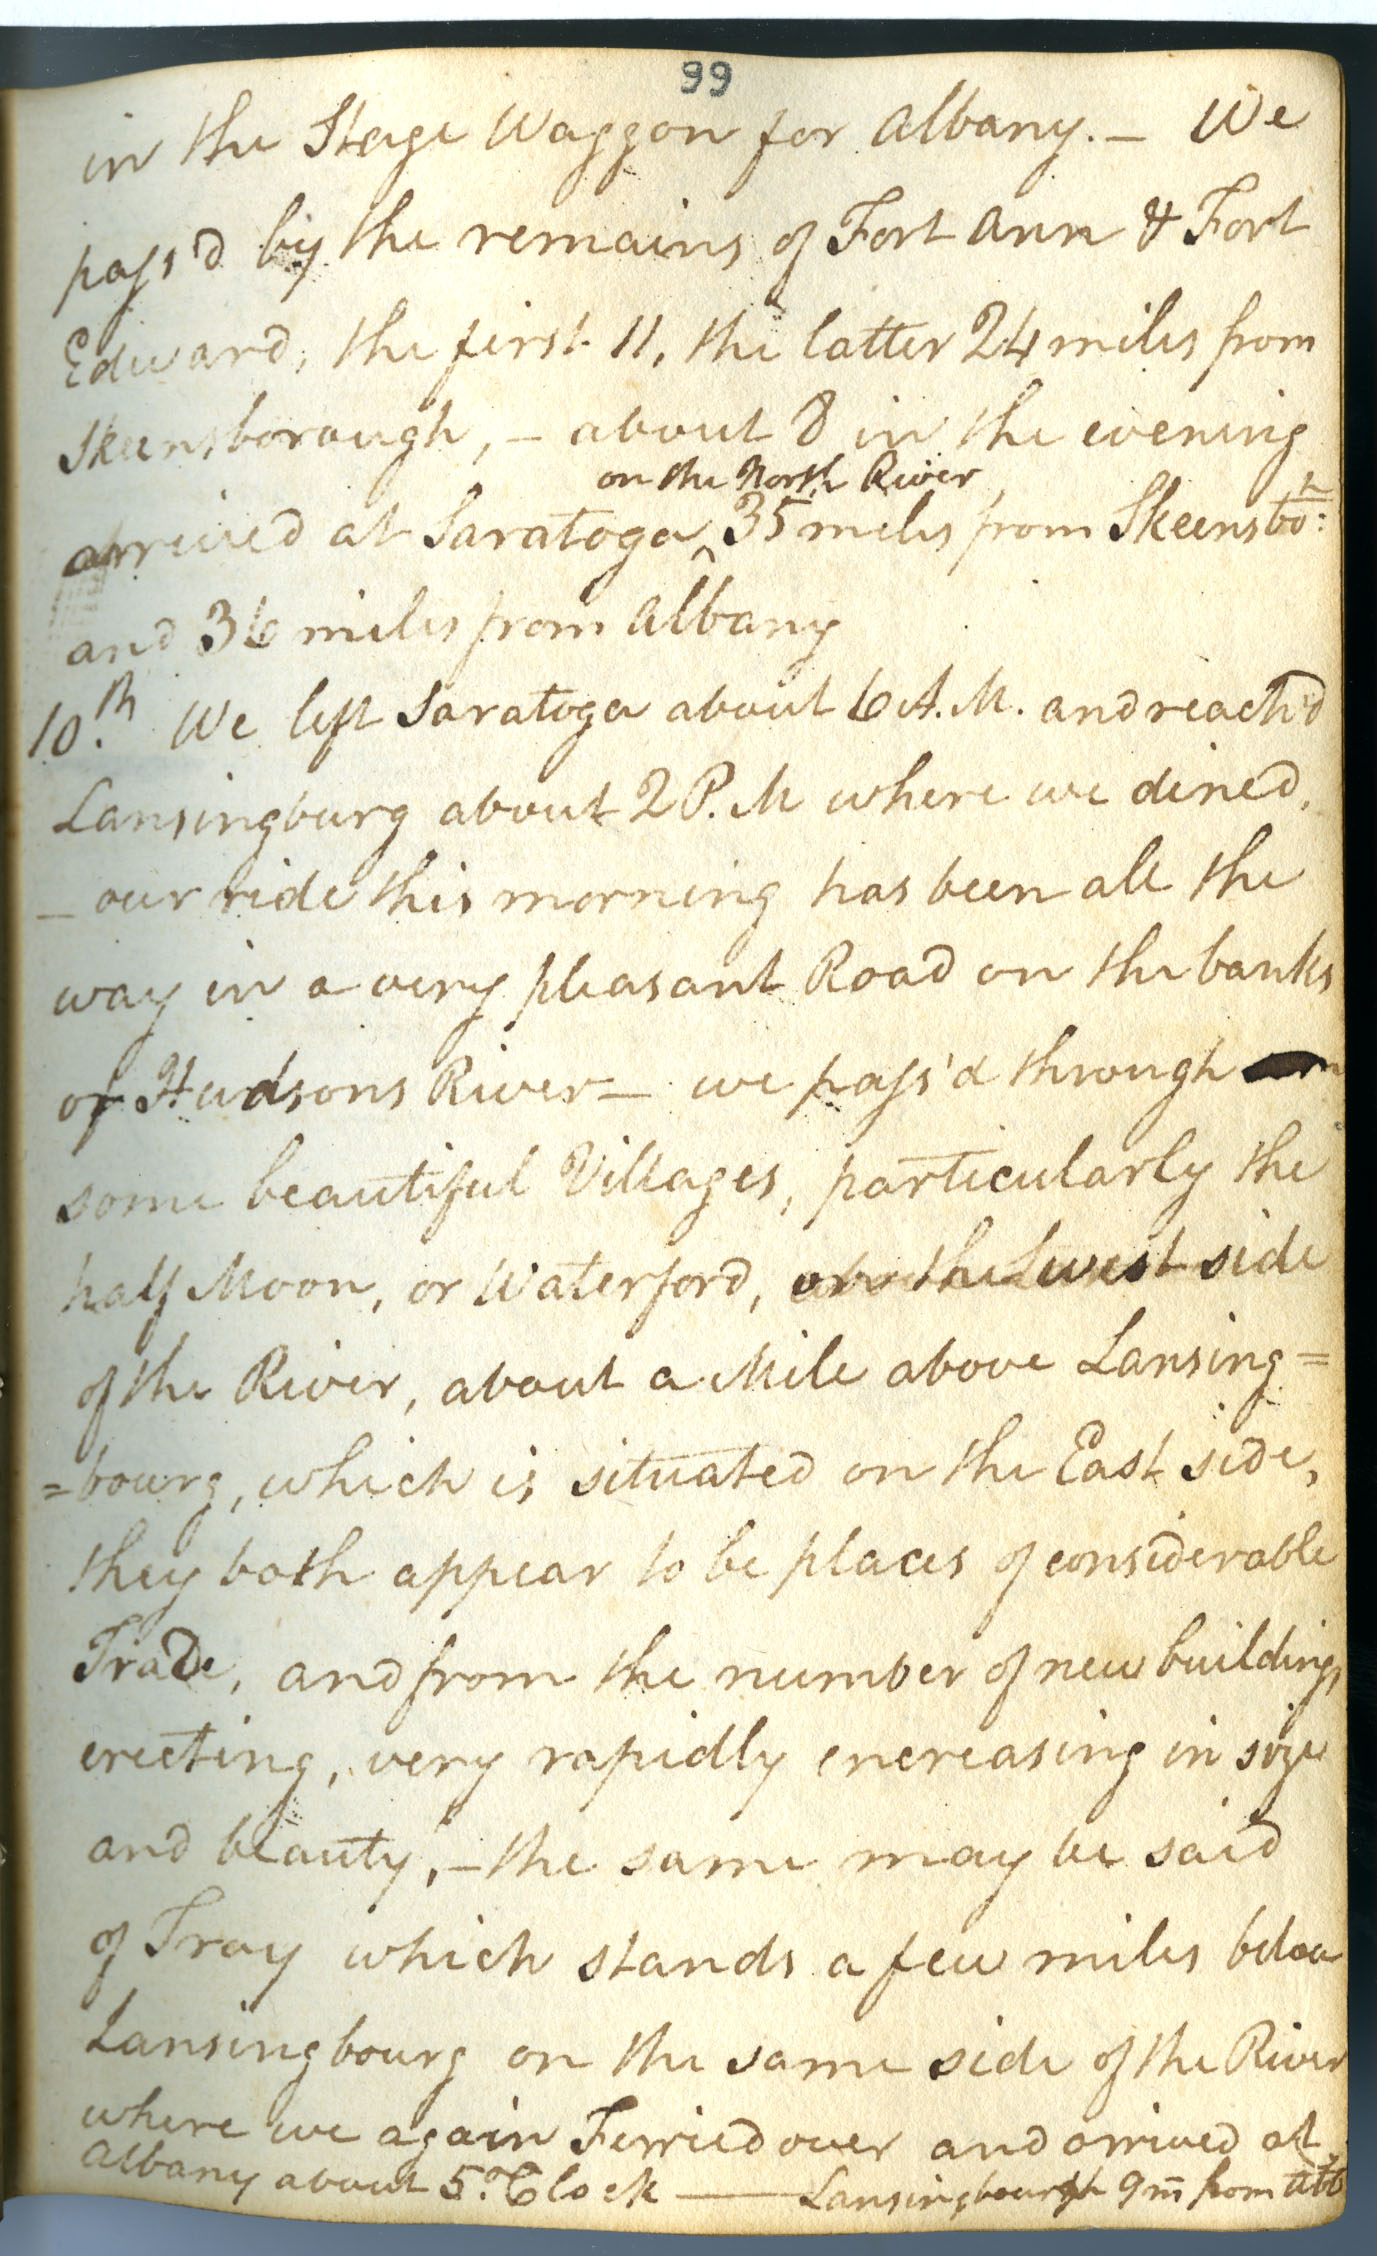 99
in the Stage Waggon for Albany. — We
pass'd by the remains of Fort Ann & Fort
Edward, the first 11, the latter 24 miles from
Skeensborough, — about 8 in the evening
on the North River,
arrived at Saratoga ^ 35 miles from Skeensbo:h
and 36 miles from Albany
10.th We left Saratoga about 6 A.M. and reach'd
Lansingburg about 2 P.M where we dined,
— our ride this morning has been all the
way in a very pleasant Road on the banks
of Hudsons River — we pass'd through
some beautiful Villages, particularly the
half Moon, or Waterford, on the west side
of the River, about a Mile above Lansing=
=bourg, which is situated on the East side,
they both appear to be places of considerable
Trade, and from the number of new buildings
erecting, very rapidly encreasing in size
and beauty, — the same may be said
of Troy which stands a few miles below
Lansingbourg on the same side of the River
where we again Ferried over and arrived at
Albany about 5.oClock — Lansingbourgh 9 m from Alb